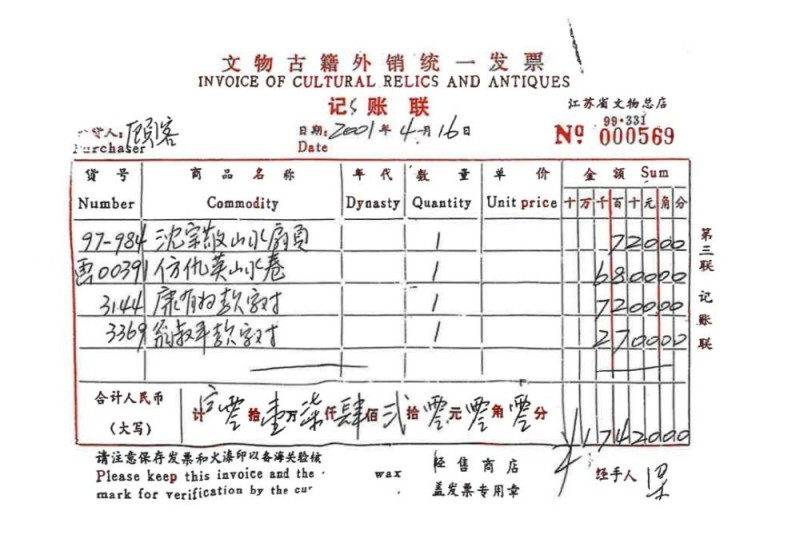 文物古籍外销统一发票
INVOICE OF CULTURAL RELICS AND ANTIQUES
记账联
江苏省文物总店
货人: 顾客
Purchaser
日期: 2001年4月16日
Date
99·331
Nº 000569
货号 商品名称 年代 数量 单价 金额 Sum
Number Commodity Dynasty Quantity Unit price 十万千百十元角分
97-984 沈宗敬山水扇页 1 72000
雲00391 仿仇英山水卷 1 680000
3144 康有为款字对 1 720000
3369 翁叔平款字对 1 270000
合计人民币
(大写)
计 零拾壹万柒仟肆佰贰拾零元零角零分 ¥1742000
第三联 记账联
请注意保存发票和火漆印以备海关验核
Please keep this invoice and the wax
mark for verification by the cu
经售商店
盖发票专用章
经手人 梁